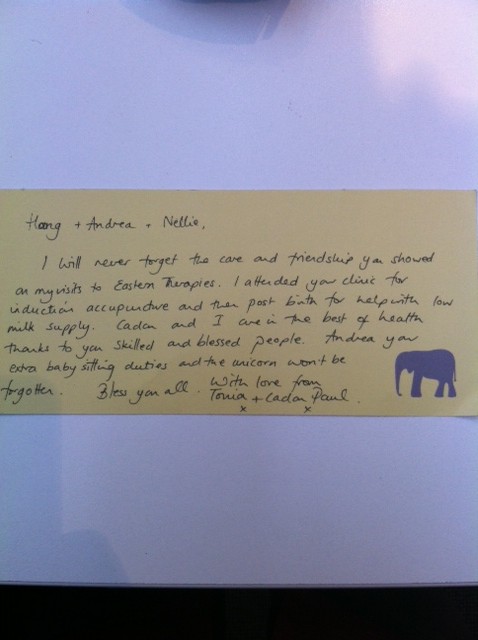 Hoong + Andrea + Nellie,
I will never forget the care and friendship you showed
on my visits to Eastern Therapies. I attended your clinic for
induction accupuncture and then post birth for help with low
milk supply. Cadan and I are in the best of health
thanks to you skilled and blessed people. Andrea your
extra baby sitting duties and the unicorn won't be
forgotten. Bless you all. With love from
Tonia + Cadan Paul.
x x